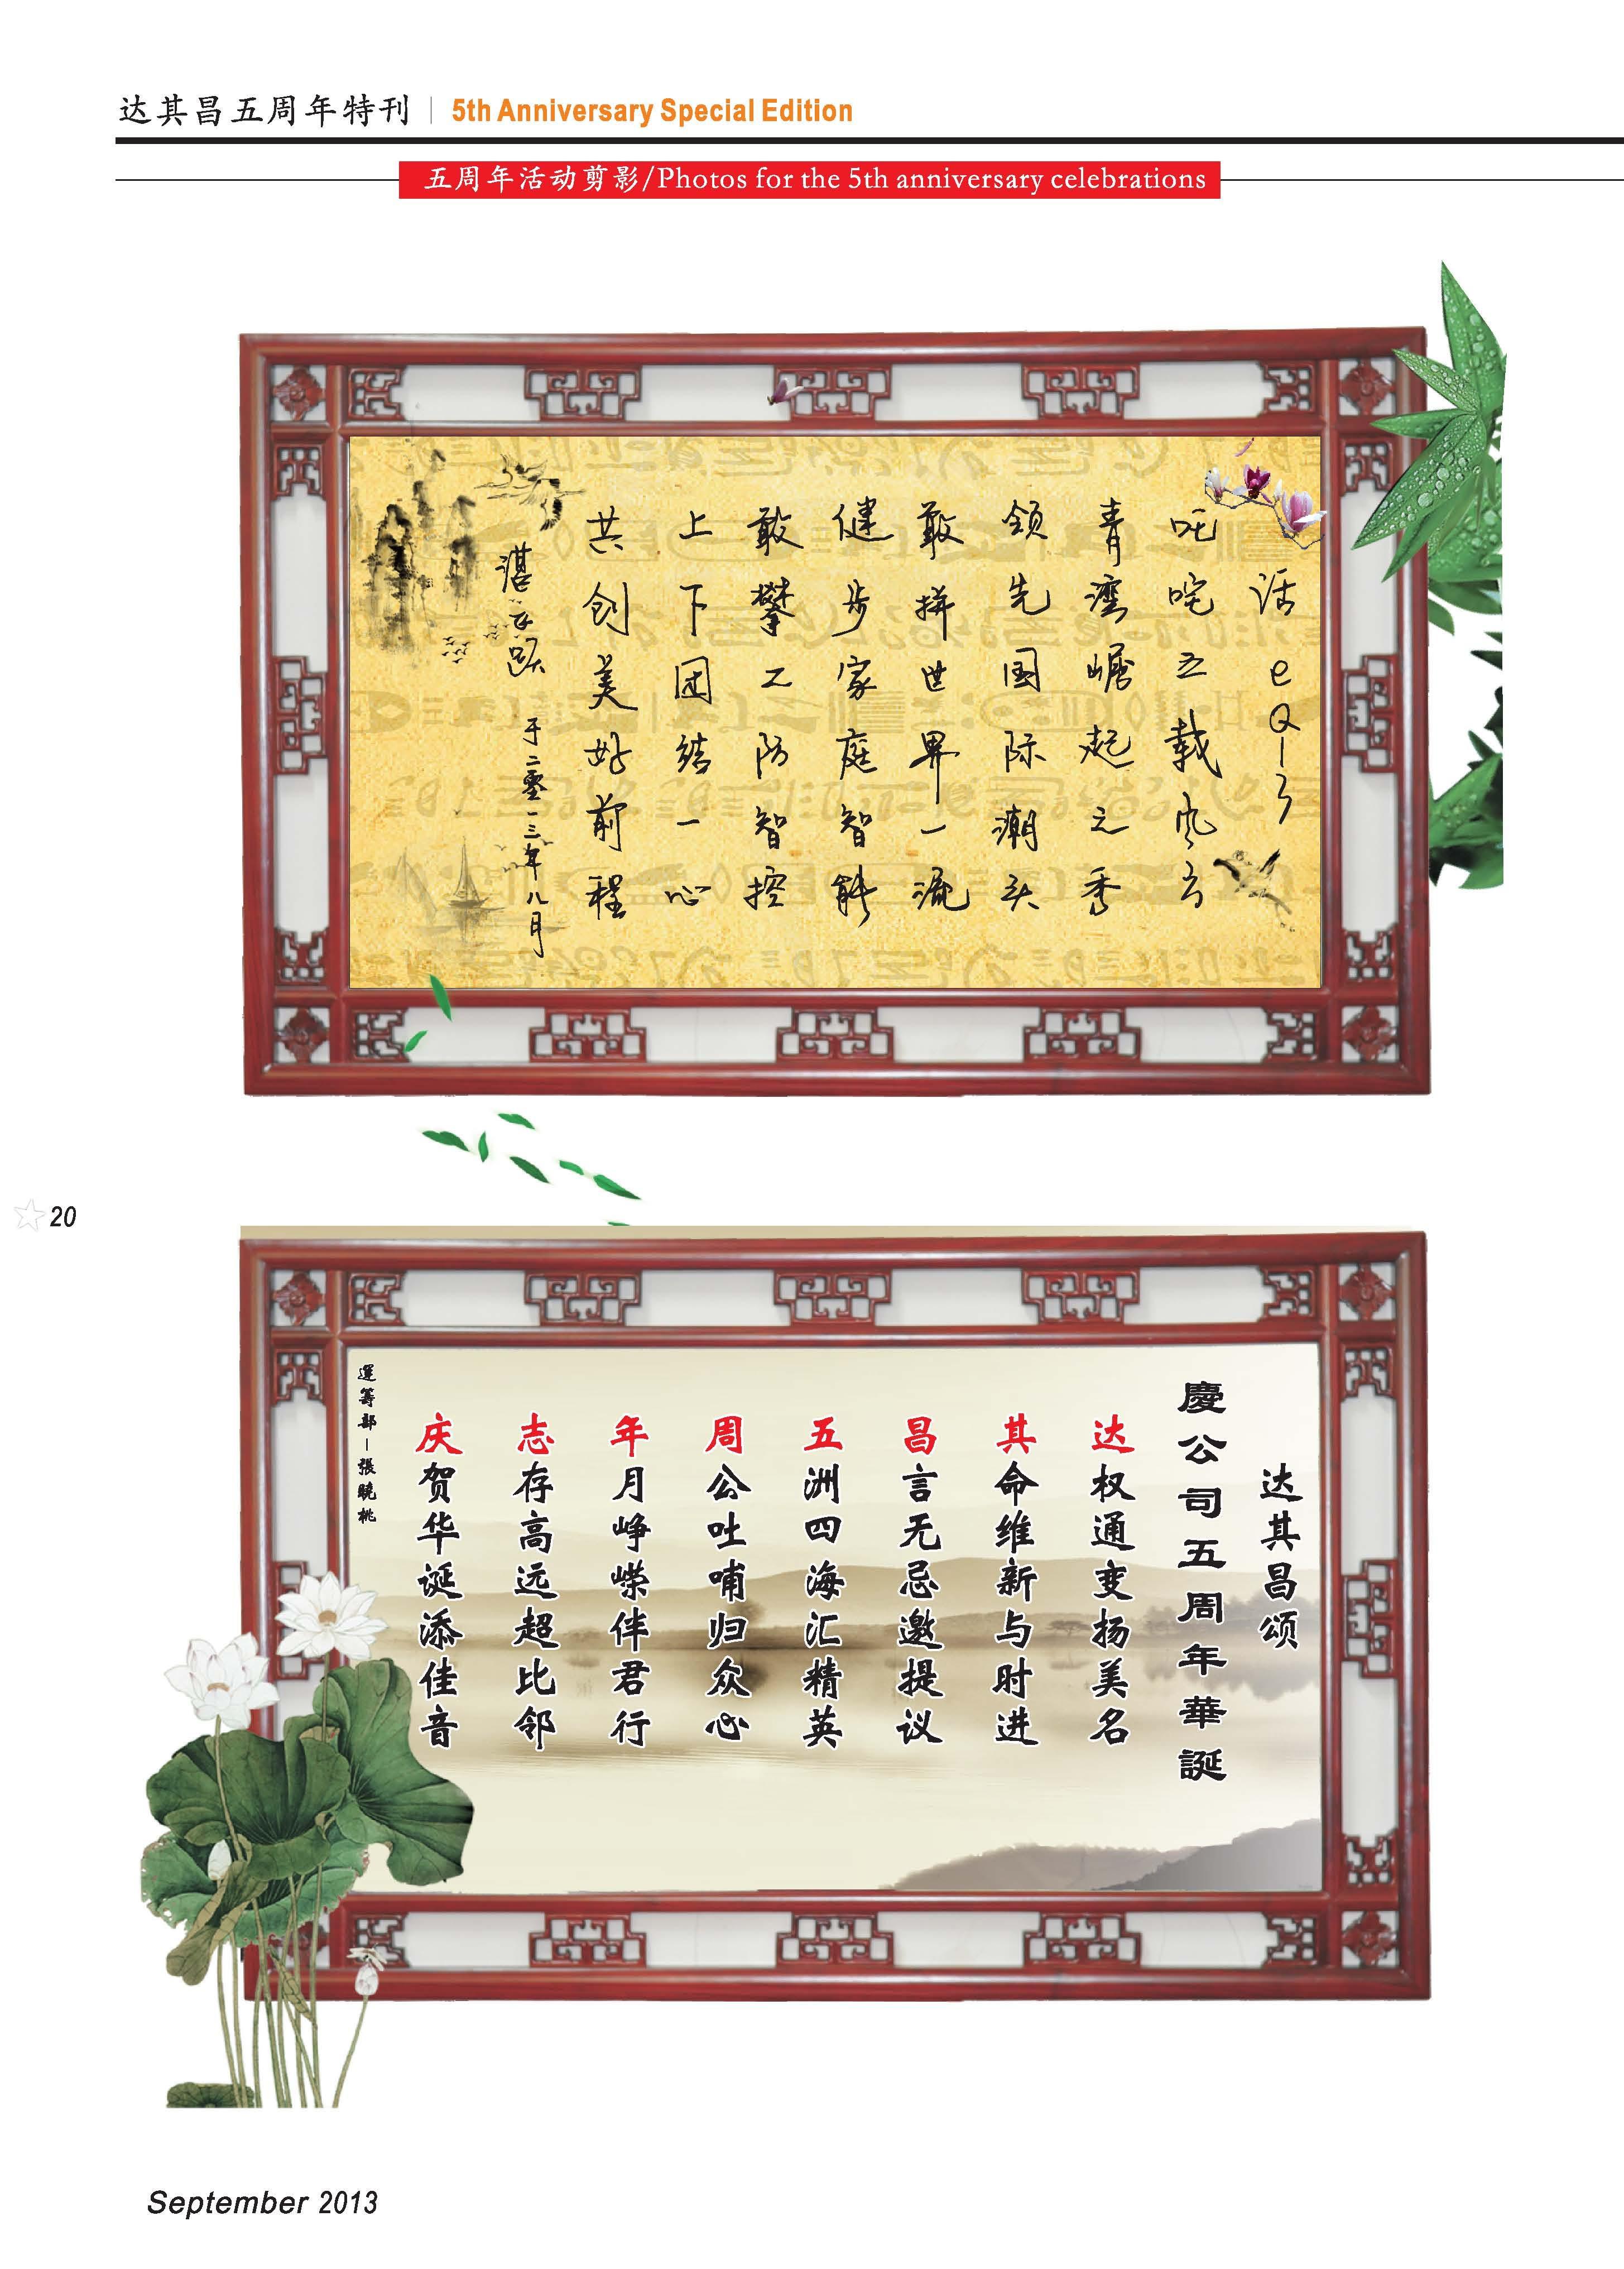 达其昌五周年特刊 | 5th Anniversary Special Edition
五周年活动剪影/Photos for the 5th anniversary celebrations
话eQ-3
叱咤五载风云
青湾崛起之秀
领先国际潮头
敢拼世界一流
健步家庭智能
敢攀工防智控
上下团结一心
共创美好前程
于二零一三年八月
20
达其昌颂
慶公司五周年華誕
达权通变扬美名
其命维新与时进
昌言无忌邀提议
五洲四海汇精英
周公吐哺归众心
年月峥嵘伴君行
志存高远超比邻
庆贺华诞添佳音
運筹部－張曉桃
September 2013